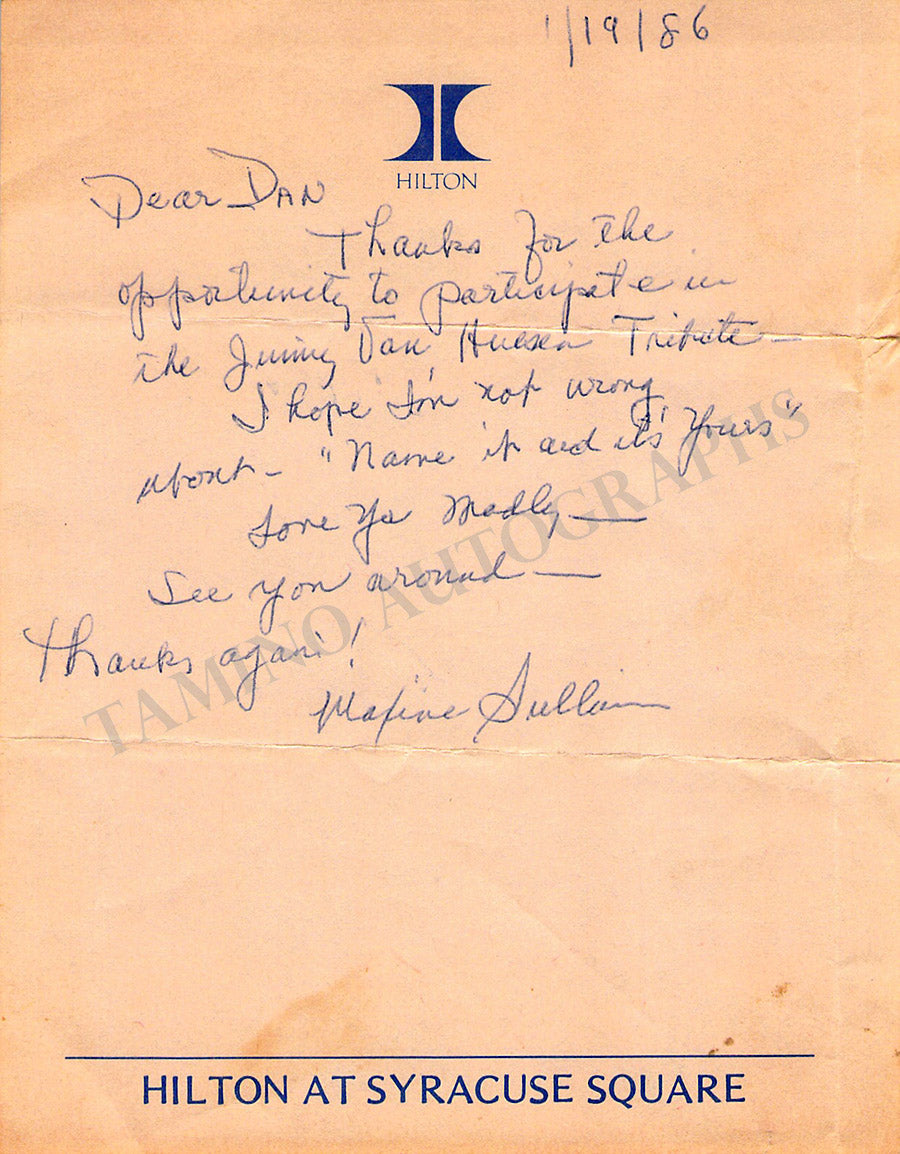 1/19/86
HILTON
Dear DAN
Thanks for the
opportunity to participate in
the Jimmy Van Heusen Tribute —
I hope I'm not wrong
about - "Name it and it's Yours"
Love Ya Madly —
See you around —
Thanks again!
Maxine Sullivan
TAMINO AUTOGRAPHS
HILTON AT SYRACUSE SQUARE